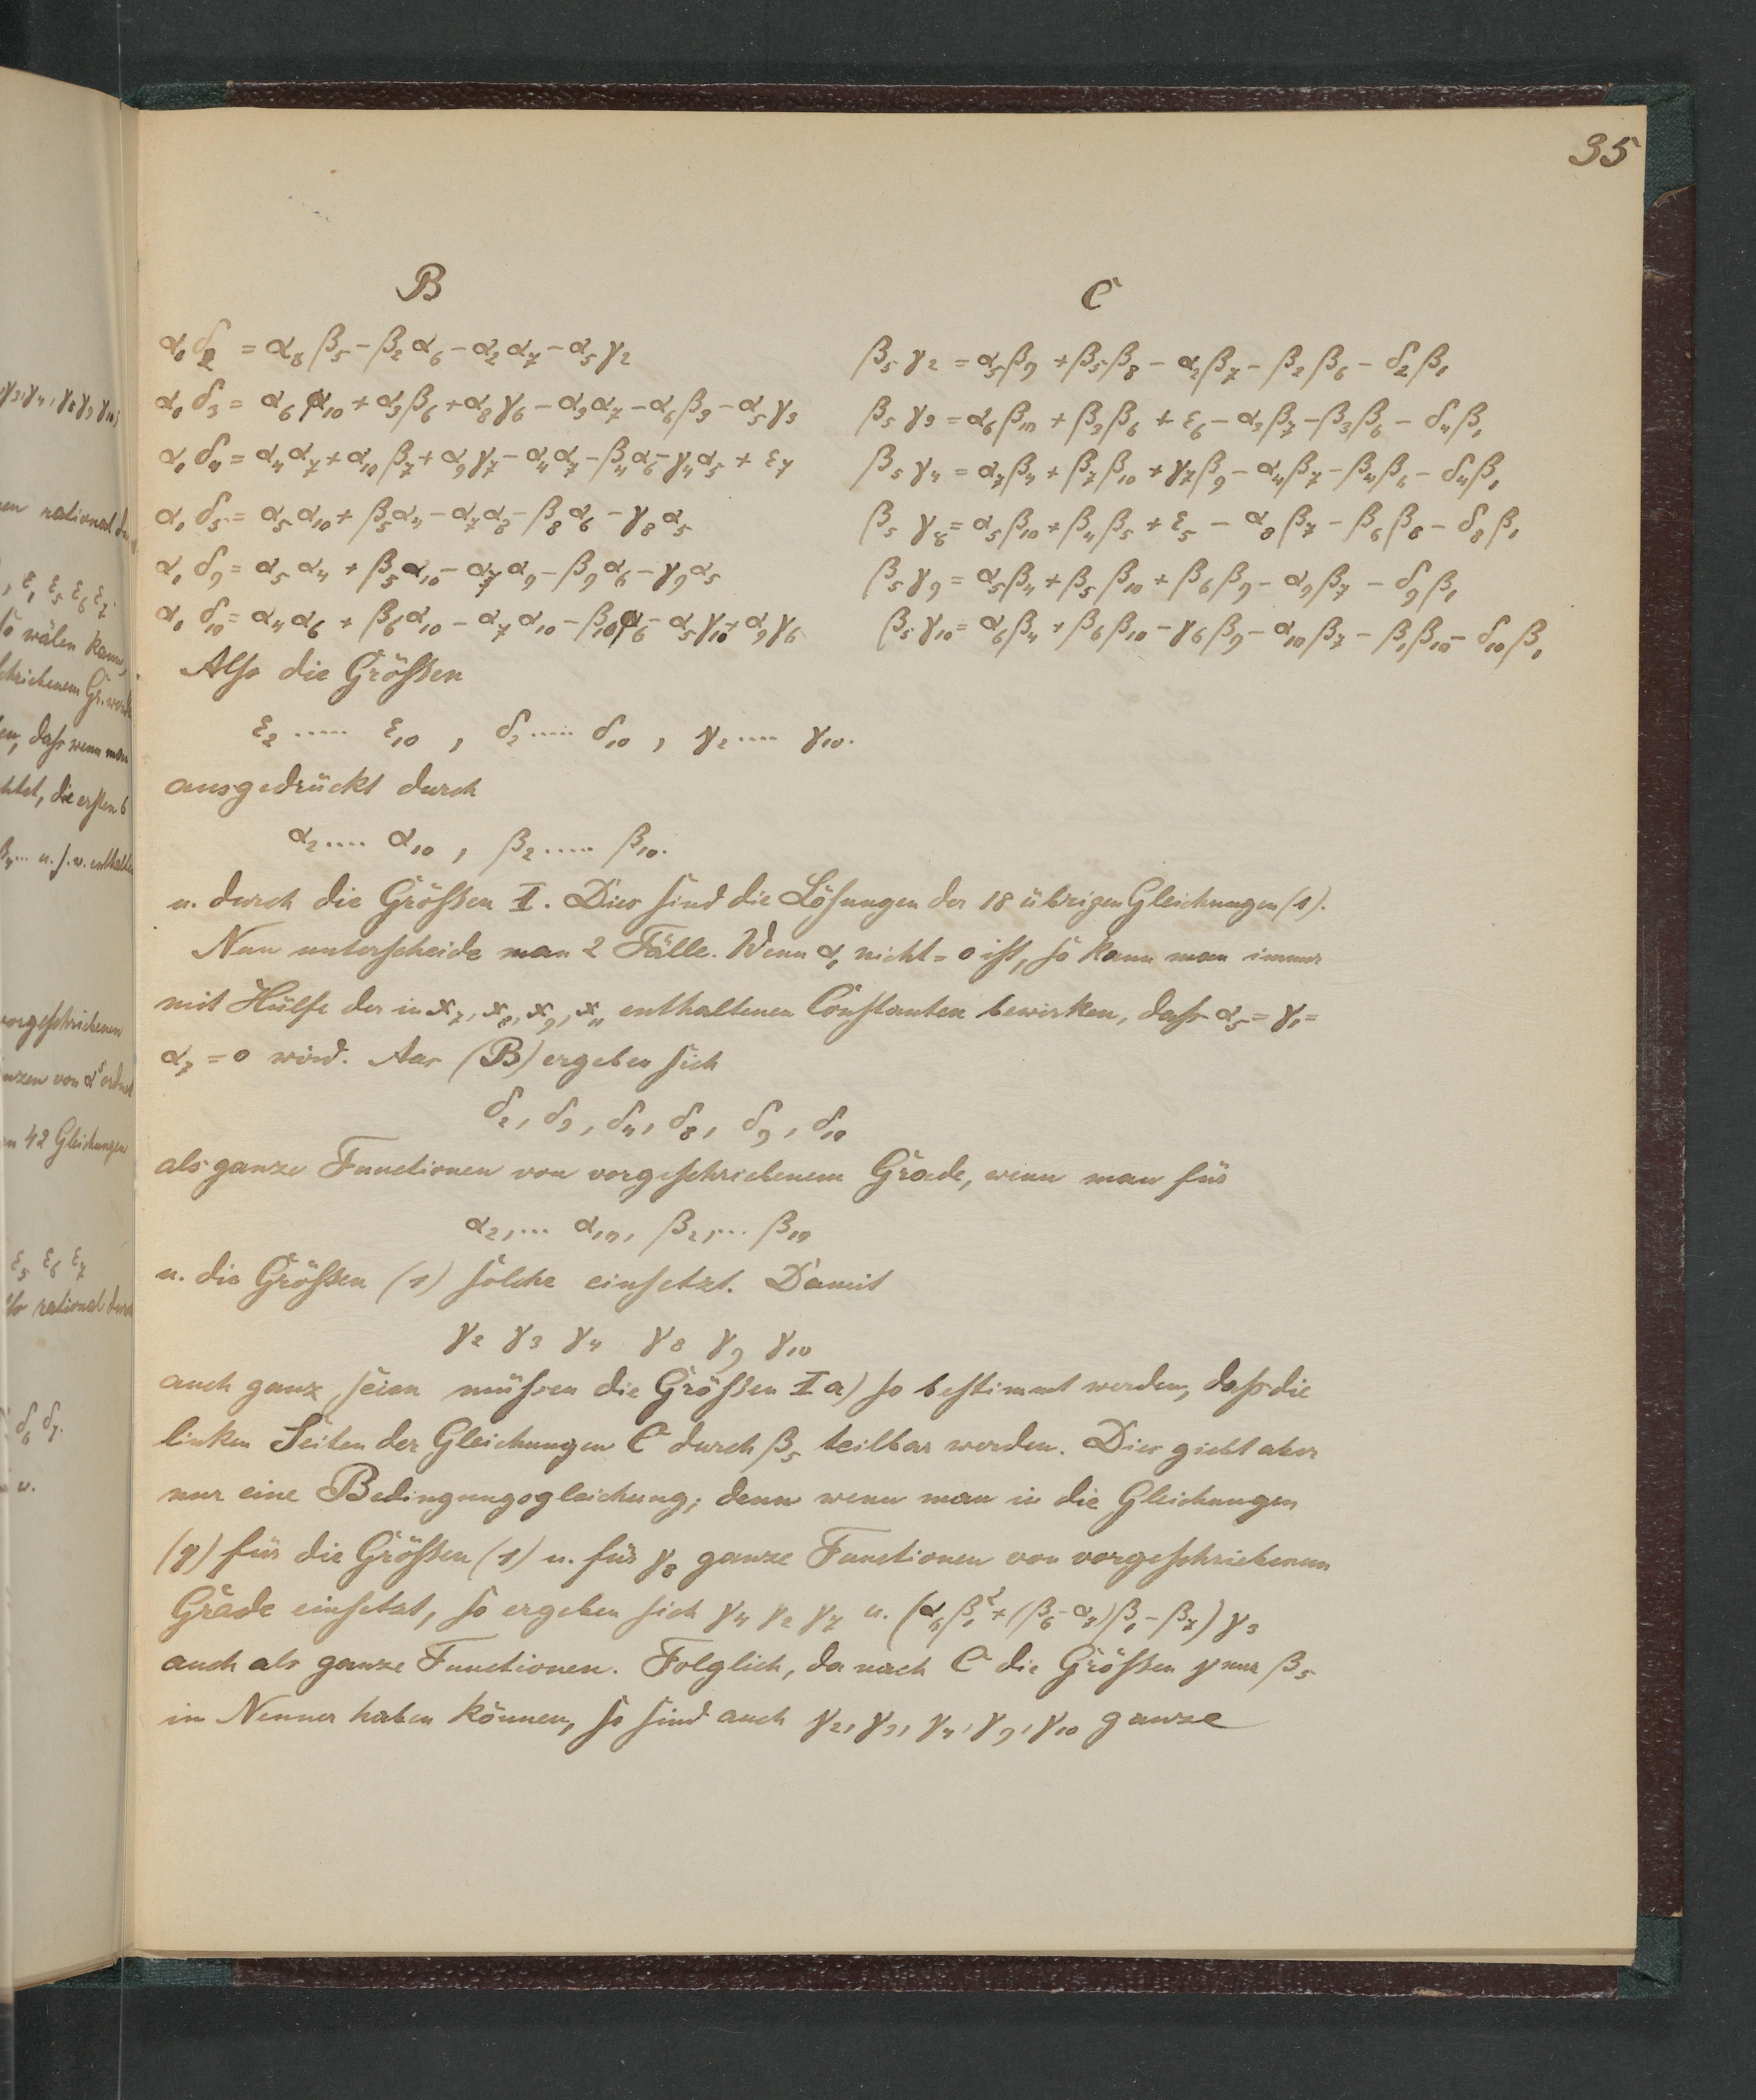 35
B
α₁ δ₂ = α₈ β₅ - β₂ α₆ - α₂ α₇ - α₅ γ₂
α₁ δ₃ = α₆ α₁₀ + α₃ β₆ + α₈ γ₆ - α₃ α₇ - α₆ β₃ - α₅ γ₃
α₁ δ₄ = α₄ α₇ + α₁₀ β₇ + α₉ γ₇ - α₄ α₇ - β₄ α₆ - γ₄ α₅ + ε₇
α₁ δ₅ = α₅ α₁₀ + β₅ α₄ - α₇ α₈ - β₈ α₆ - γ₈ α₅
α₁ δ₉ = α₅ α₄ + β₅ α₁₀ - α₇ α₉ - β₉ α₆ - γ₉ α₅
α₁ δ₁₀ = α₄ α₆ + β₆ α₁₀ - α₇ α₁₀ - β₁₀ α₆ - α₅ γ₁₀ + α₉ γ₆
C
β₅ γ₂ = α₅ β₉ + β₅ β₈ - α₂ β₇ - β₂ β₆ - δ₂ β₁
β₅ γ₃ = α₆ β₁₀ + β₃ β₆ + ε₆ - α₃ β₇ - β₃ β₆ - δ₄ β₁
β₅ γ₄ = α₇ β₄ + β₇ β₁₀ + γ₇ β₉ - α₄ β₇ - β₄ β₆ - δ₄ β₁
β₅ γ₈ = α₅ β₁₀ + β₄ β₅ + ε₅ - α₈ β₇ - β₆ β₈ - δ₈ β₁
β₅ γ₉ = α₅ β₄ + β₅ β₁₀ + β₆ β₉ - α₉ β₇ - δ₉ β₁
β₅ γ₁₀ = α₆ β₄ + β₆ β₁₀ - γ₆ β₉ - α₁₀ β₇ - β₁ β₁₀ - δ₁₀ β₁
Also die Größen
ε₂ ..... ε₁₀ , δ₂ ..... δ₁₀ , γ₂ .... γ₁₀.
ausgedrückt durch
α₂ .... α₁₀ , β₂ ..... β₁₀.
u. durch die Größen I. Dies sind die Lösungen der 18 übrigen Gleichungen (1).
Nun unterscheide man 2 Fälle. Wenn α₁ nicht = 0 ist, so kann man immer
mit Hülfe der in x₇, x₈, x₉, x₁₁ enthaltenen Constanten bewirken, daß α₅ = γ₁ =
α₇ = 0 wird. Aus (B) ergeben sich
δ₂, δ₃, δ₄, δ₈, δ₉, δ₁₀
als ganze Functionen von vorgeschriebenem Grade, wenn man für
α₂, ... α₁₀, β₂, ... β₁₀
u. die Größen (1) solche einsetzt. Damit
γ₂ γ₃ γ₄ γ₈ γ₉ γ₁₀
auch ganz seien müssen die Größen I a) so bestimmt werden, daß die
linken Seiten der Gleichungen C durch β₅ teilbar werden. Dies giebt aber
nur eine Bedingungsgleichung; denn wenn man in die Gleichungen
(γ) für die Größen (1) u. für γ₈ ganze Functionen von vorgeschriebenem
Grade einsetzt, so ergeben sich γ₄ γ₂ γ₇ u. (α₅ β₁² + (β₆ - α₇) β₁ - β₇) γ₃
auch als ganze Functionen. Folglich, da nach C die Größen γ nur β₅
im Nenner haben können, so sind auch γ₂, γ₃, γ₄, γ₉, γ₁₀ ganze